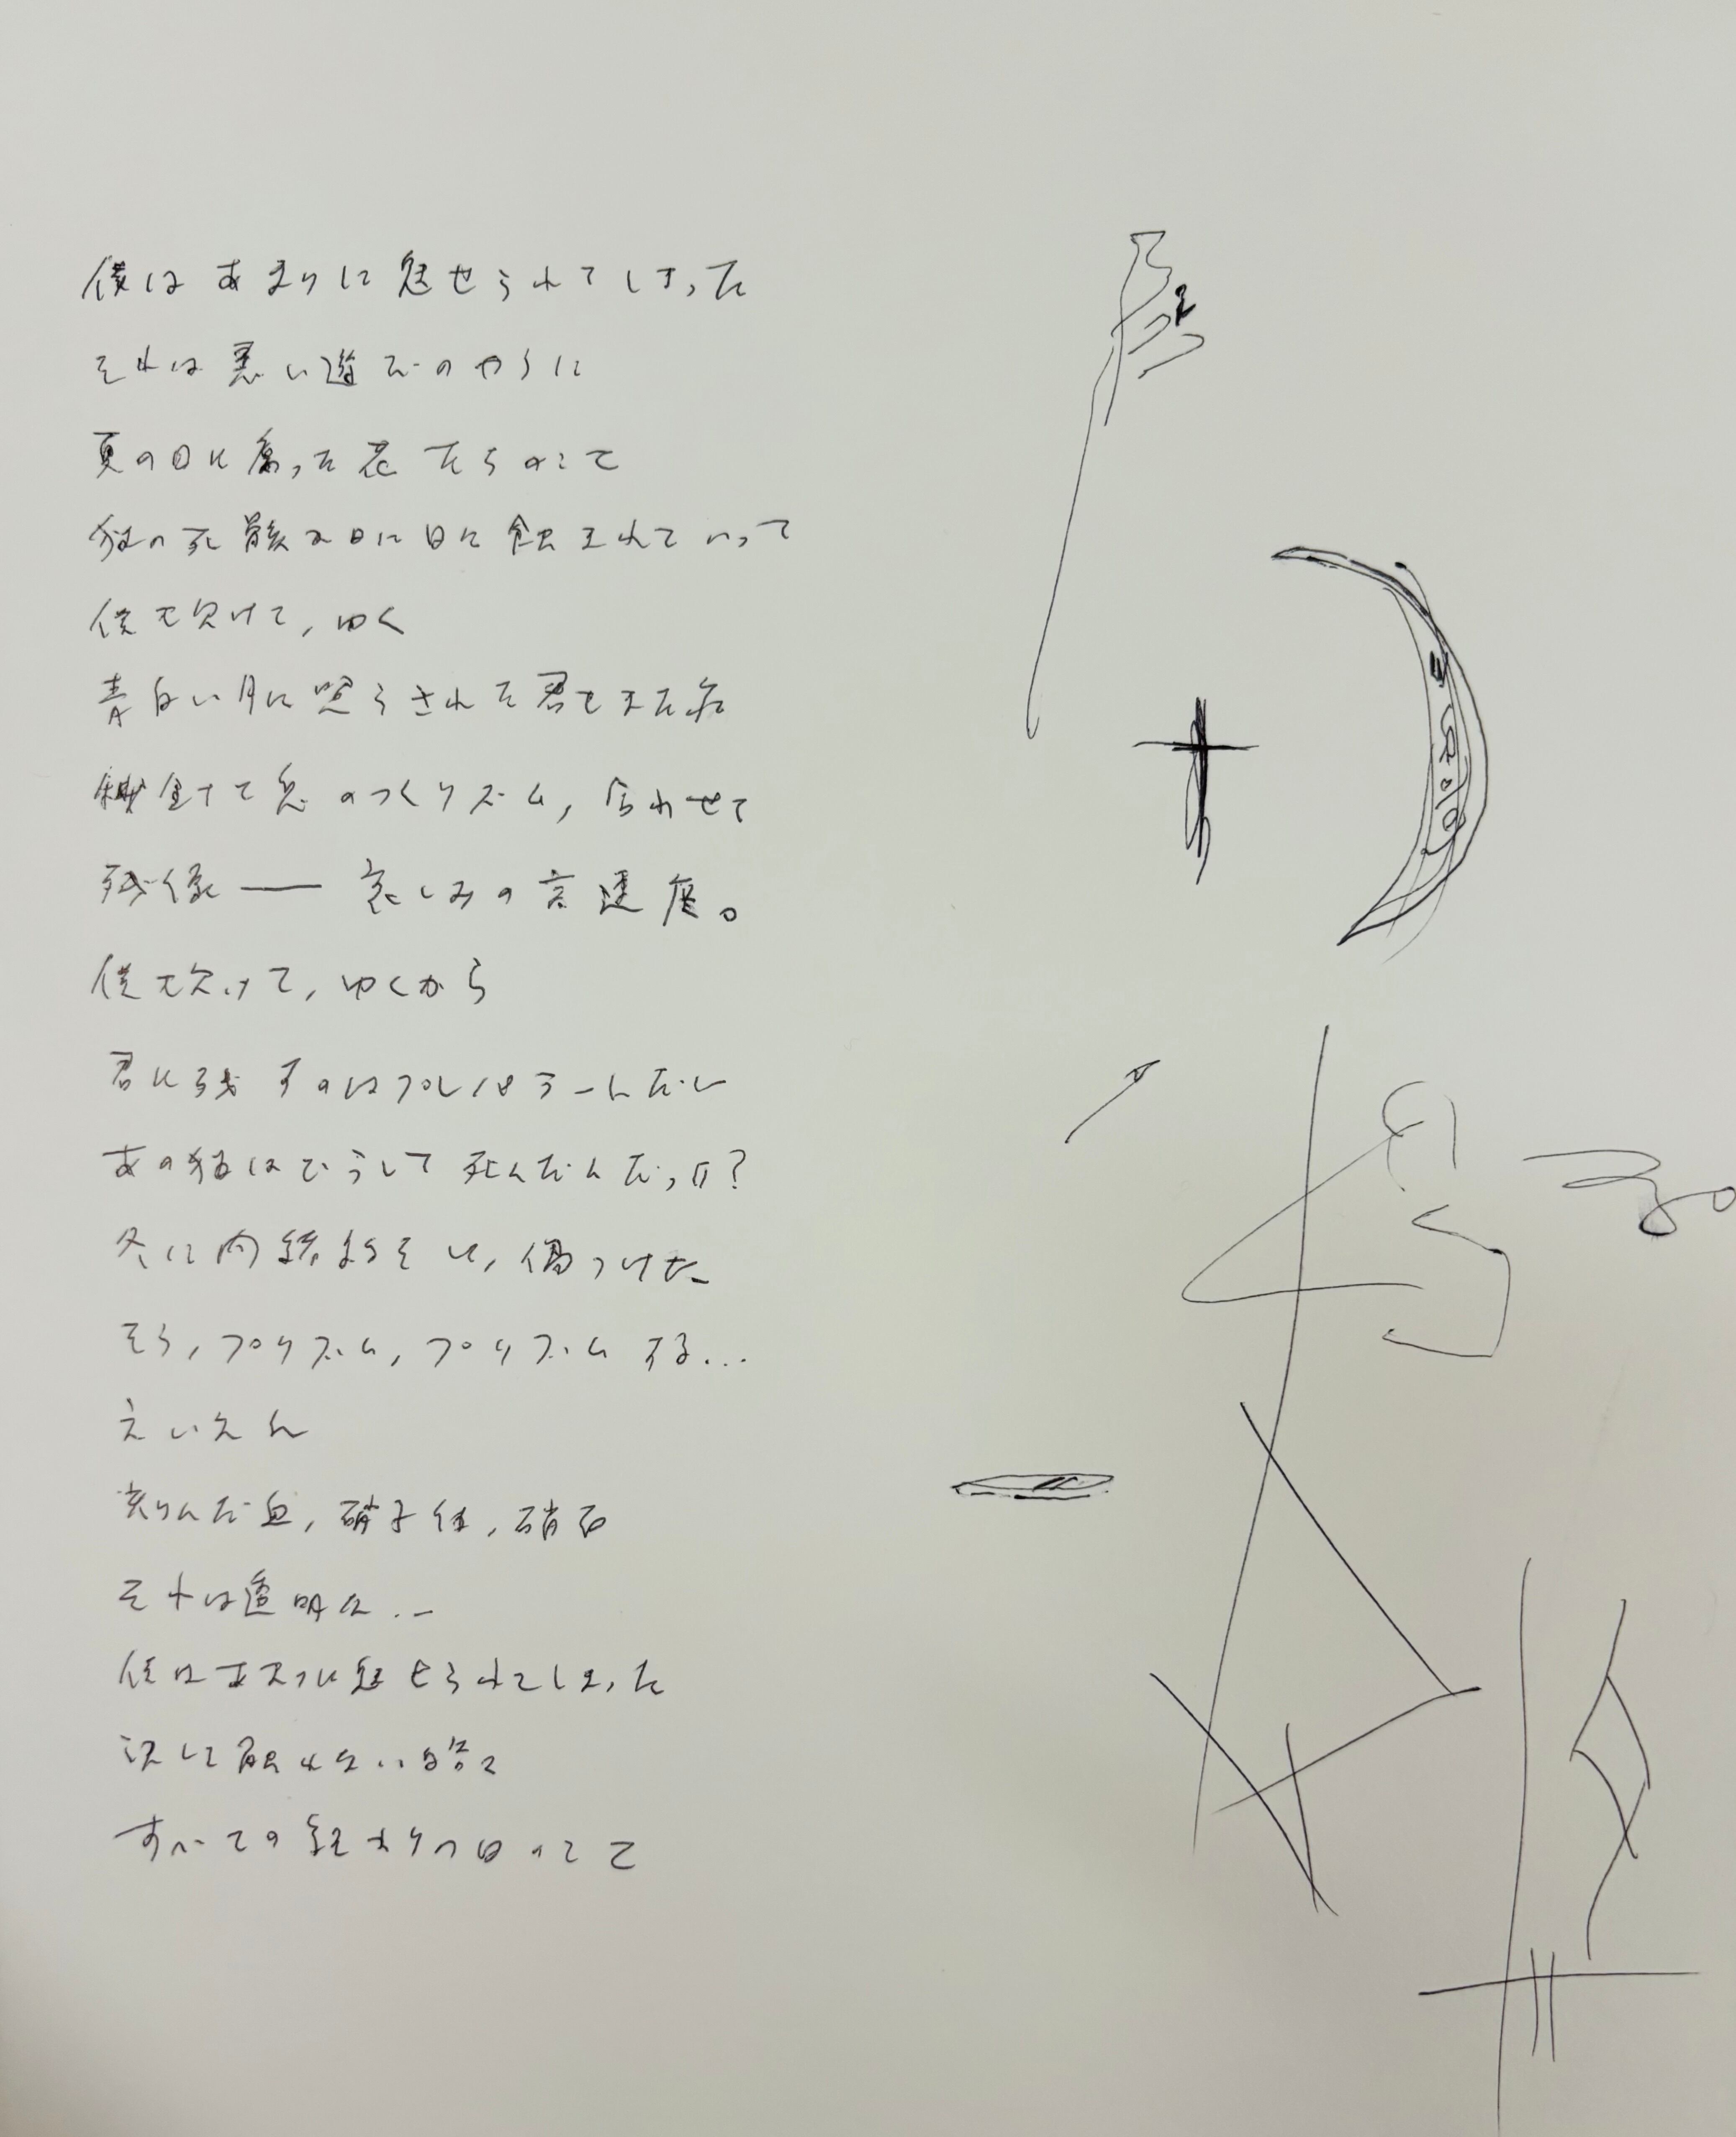 僕はあまりに魅せられてしまった
それは悪い遊びのやうに
夏の日に腐った花たちのこと
猫の死骸が日に日に蝕まれていって
僕も欠けて,ゆく
青白い月に照らされた君もまた
のつくリズム,合わせて
残像――哀しみの高速度。
僕も欠けて,ゆくから
君に残すのはプレパラートだい
あの猫はどうして死んだんだっけ?
冬に内緒話をし,傷つけた
そう,プリズム,プリズムする...
えいえん
刻んだ血,硝子体,硝石
それは透明な..
僕はあまりに魅せられてしまった
決して触れない
すべての終わりの日のこと